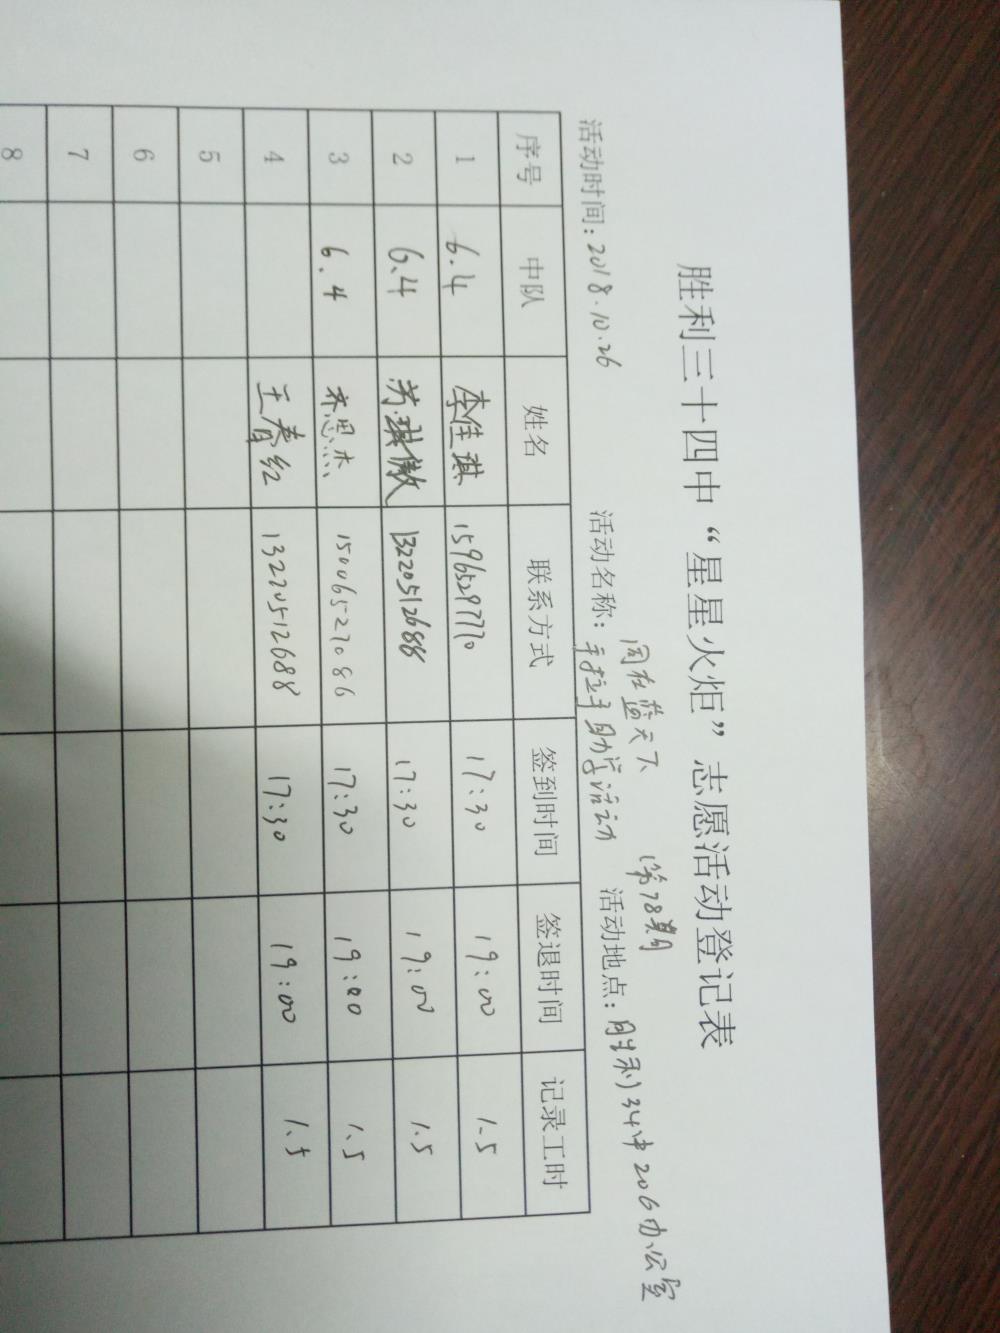 胜利三十四中“星星火炬”志愿活动登记表
同在蓝天下 (第78期
活动时间：2018.10.26 活动名称：手拉手助学活动 活动地点：胜利34中206办公室
序号 中队 姓名 联系方式 签到时间 签退时间 记录工时
1 6.4 李佳琪 15965297770 17:30 19:00 1.5
2 6.4 13220512688 17:30 19:00 1.5
3 6.4 齐思杰 15006527086 17:30 19:00 1.5
4 王春红 13220512688 17:30 19:00 1.5
5
6
7
8